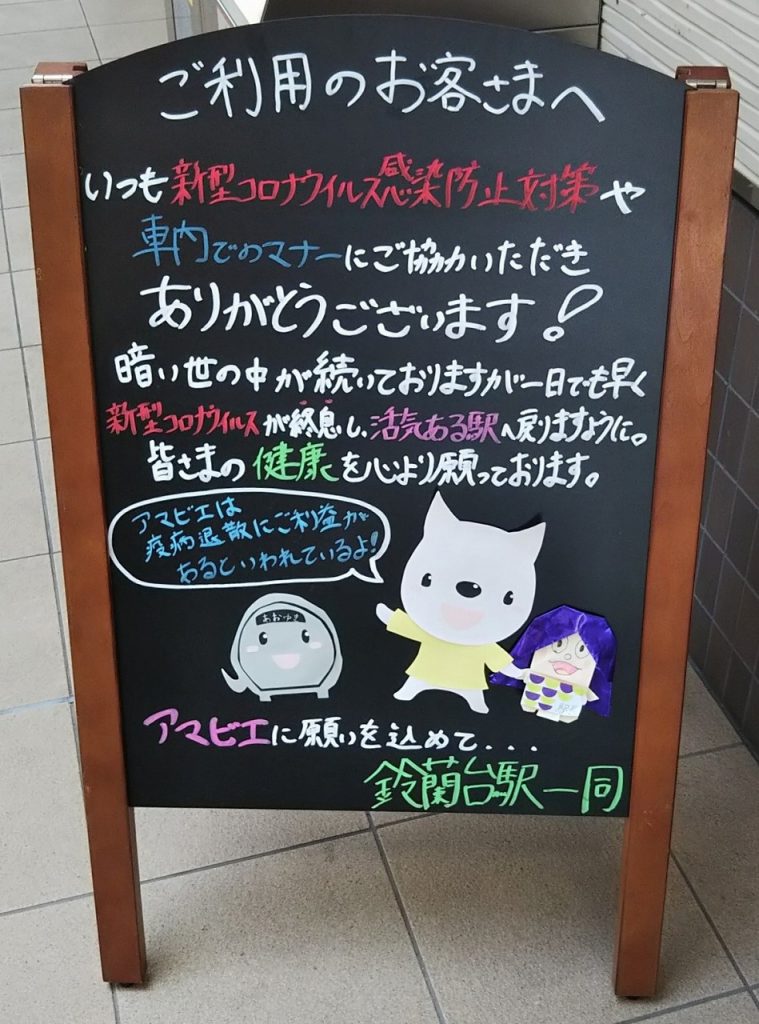 ご利用のお客さまへ
いつも新型コロナウイルス感染防止対策や
車内でのマナーにご協力いただき
ありがとうございます!
暗い世の中が続いておりますが一日でも早く
新型コロナウイルスが終息し、活気ある駅へ戻りますように。
皆さまの健康を心より願っております。
アマビエは
疫病退散にご利益が
あるといわれているよ!
あおゆき
アマビエに願いを込めて...
鈴蘭台駅一同